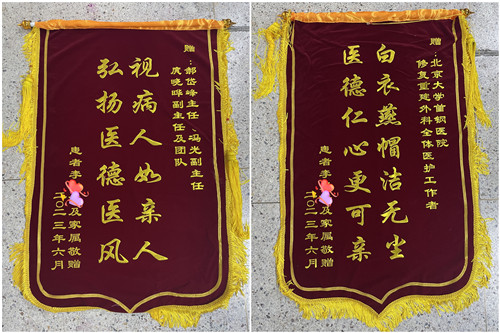 赠：郝岱峰主任、冯光副主任
庹晓晔副主任及团队
视病人如亲人
弘扬医德医风
患者李 及家属敬赠
二〇二三年六月
赠：北京大学首钢医院
修复重建外科全体医护工作者
白衣燕帽洁无尘
医德仁心更可亲
患者李 及家属敬赠
二〇二三年六月